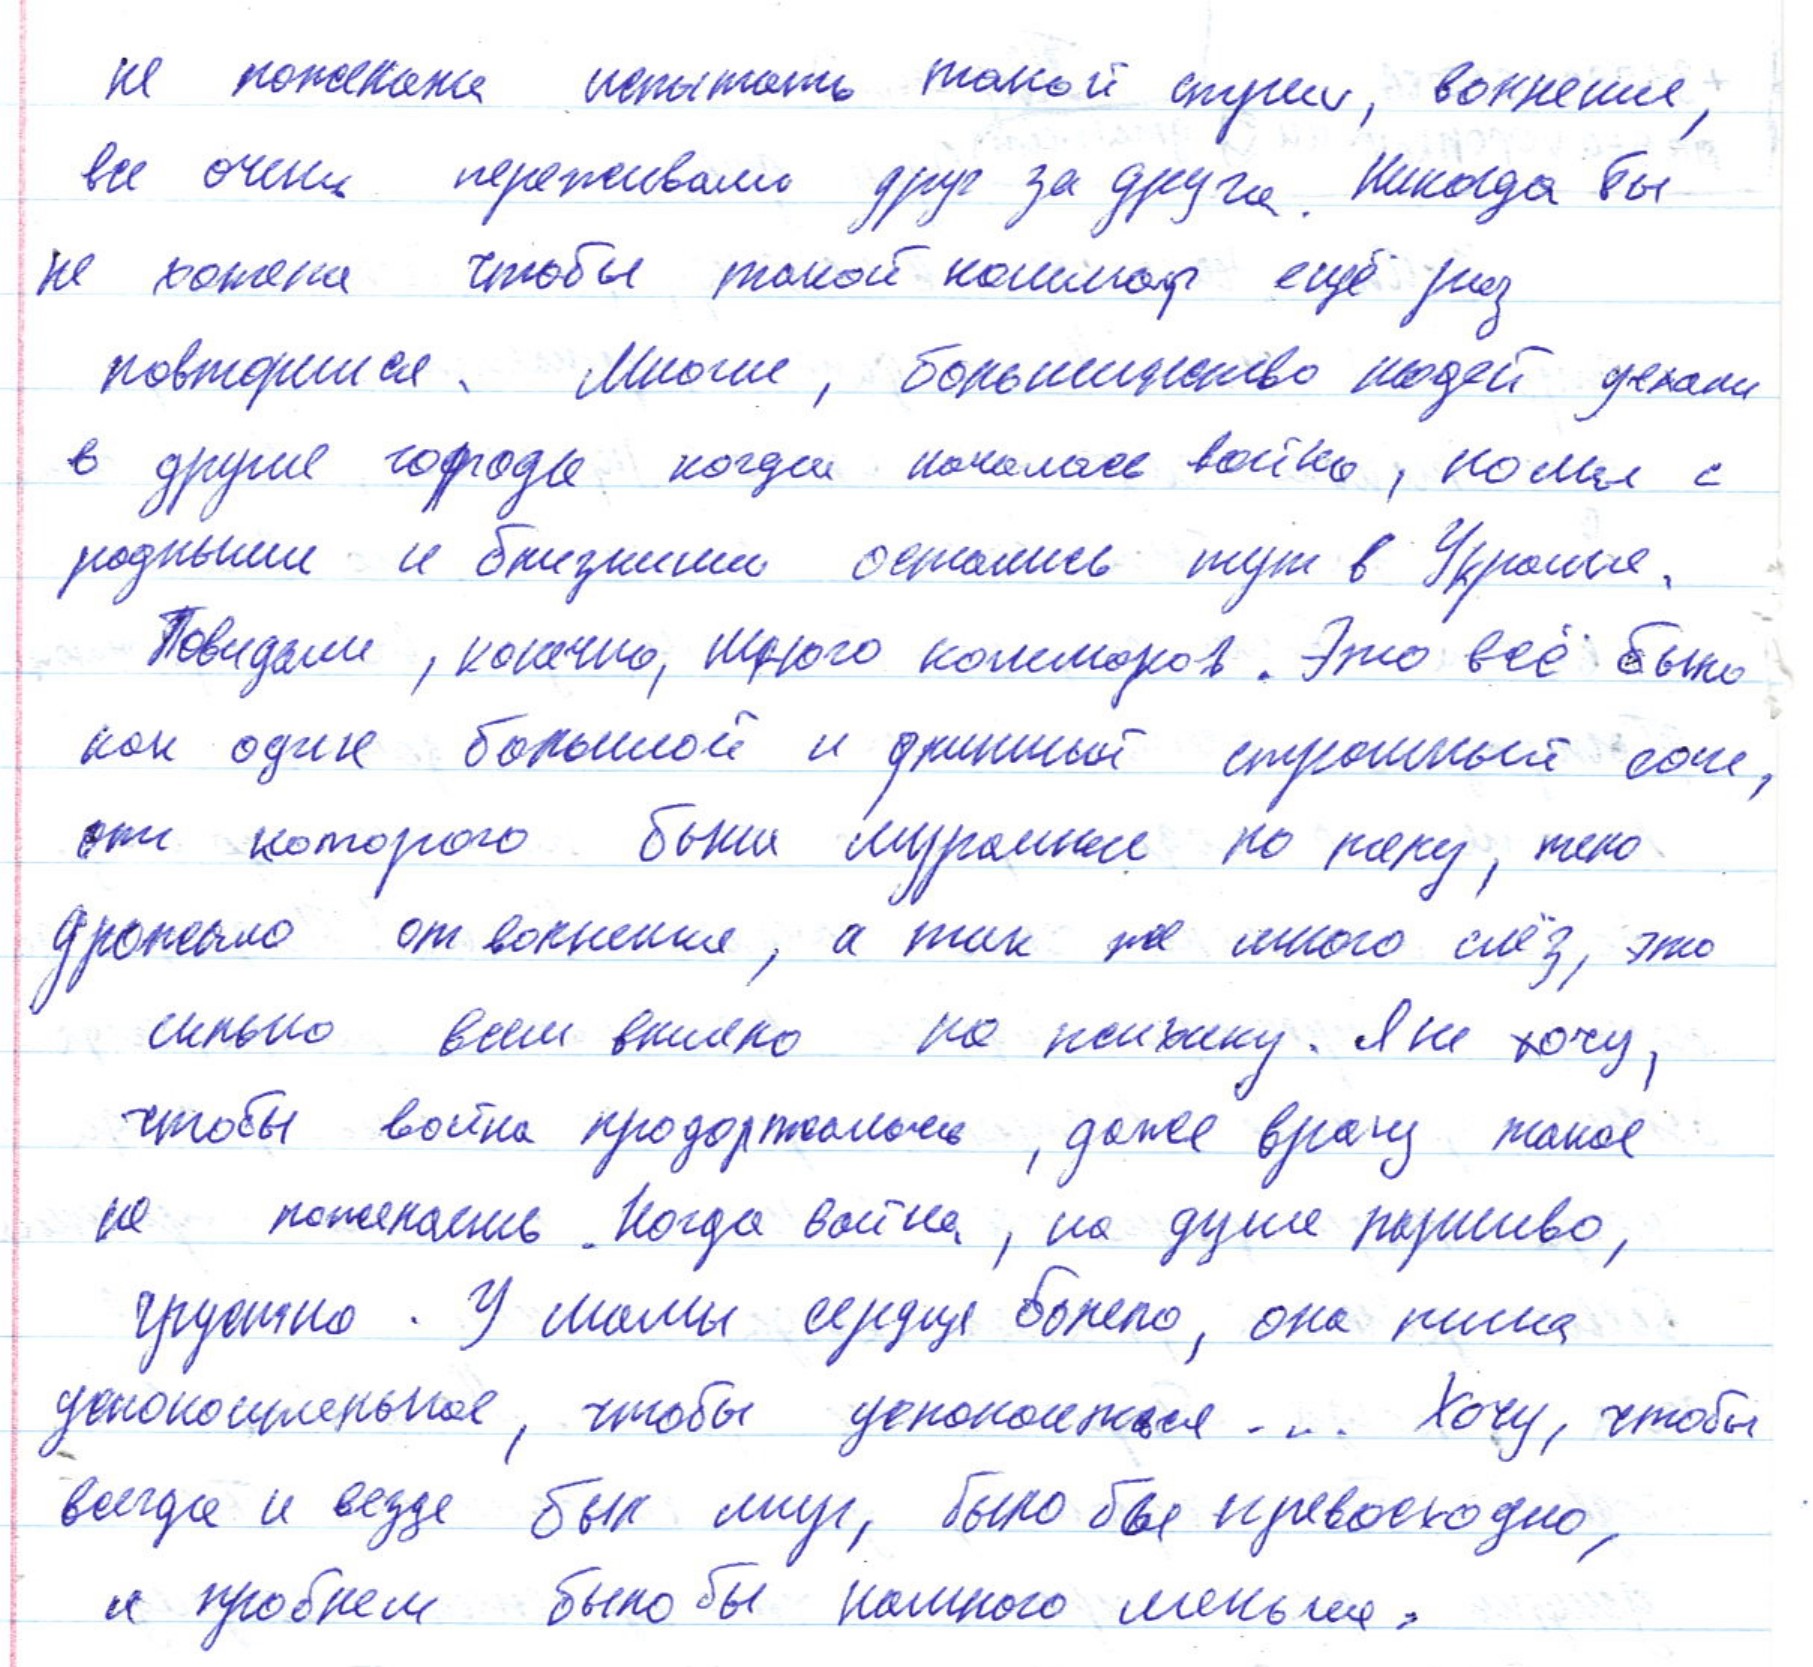 не пожелала испытать такой стресс, волнение,
все очень переживали друг за друга. Никогда бы
не хотела чтобы такой кошмар ещё раз
повторился. Многие, большинство людей уехали
в другие города когда началась война, но мы с
родными и близкими остались тут в Украине.
Повидали, конечно, много кошмаров. Это всё было
как один большой и длинный страшный сон,
от которого были мурашки по телу, тело
дрожало от волнения, а так же много слёз, это
сильно всем влияло на психику. Я не хочу,
чтобы война продолжалась, даже врагу такое
не пожелаешь. Когда война, на душе паршиво,
грустно. У мамы сердце болело, она пила
успокоительное, чтобы успокоится... Хочу, чтобы
всегда и везде был мир, было бы превосходно,
и проблем было бы намного меньше.